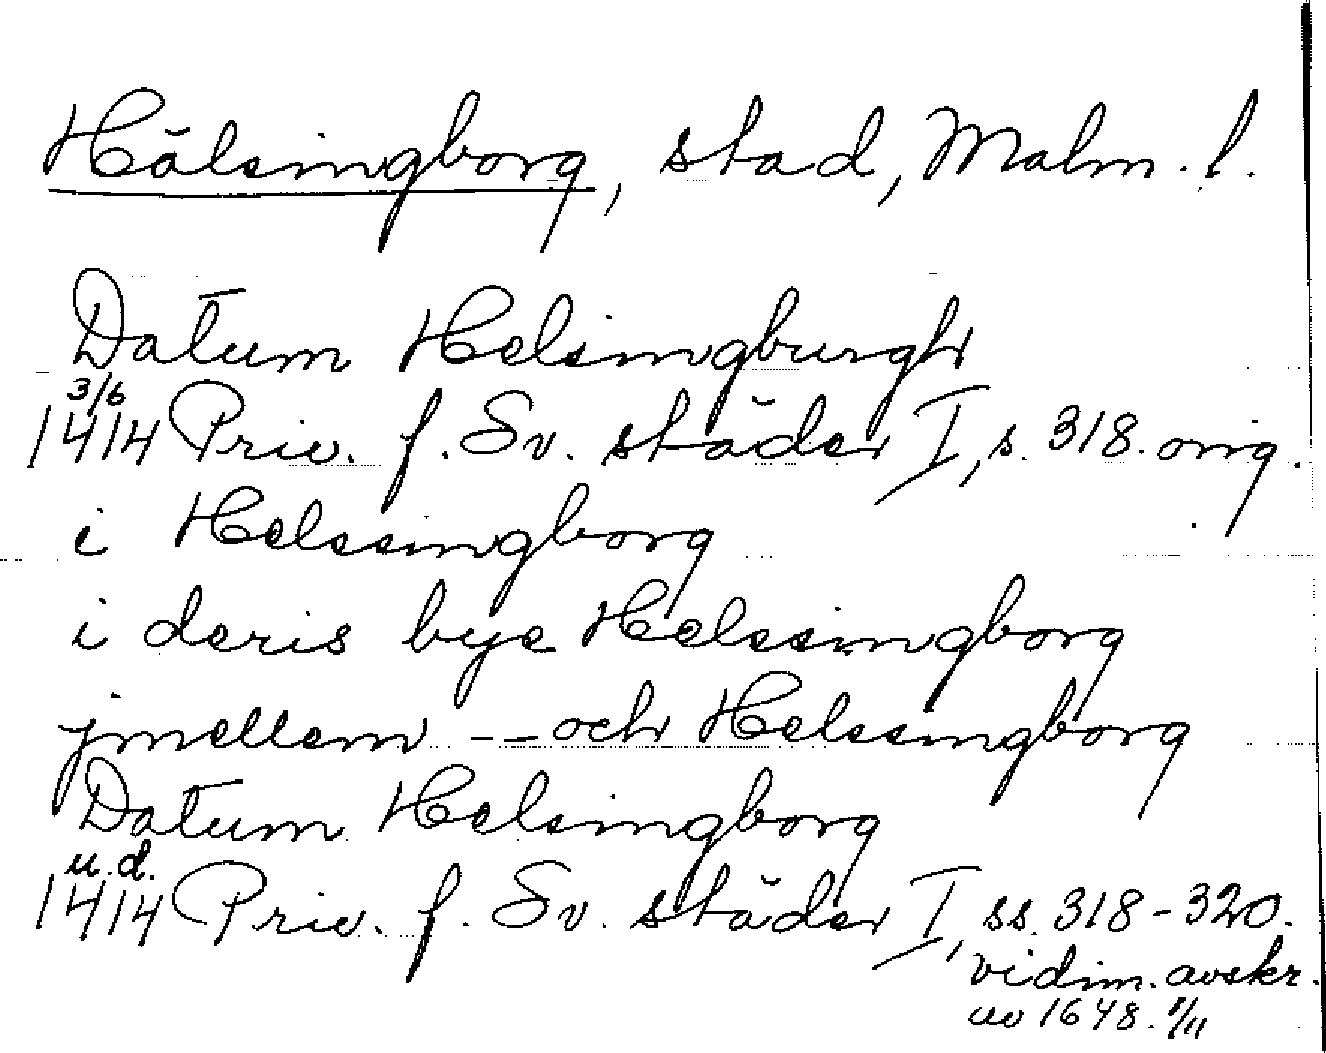 Hälsingborg, stad, Malm. l.
Datum Helsingburgh
3/6
1414 Priv. f. Sv. städer I, s. 318. orig.
i Helssingborg
i deris bye Helssingborg
jmellem -- och Helssingborg
Datum Helsingborg
u.d.
1414 Priv. f. Sv. städer I, ss. 318-320.
vidim. avskr.
av 1648. 1/11